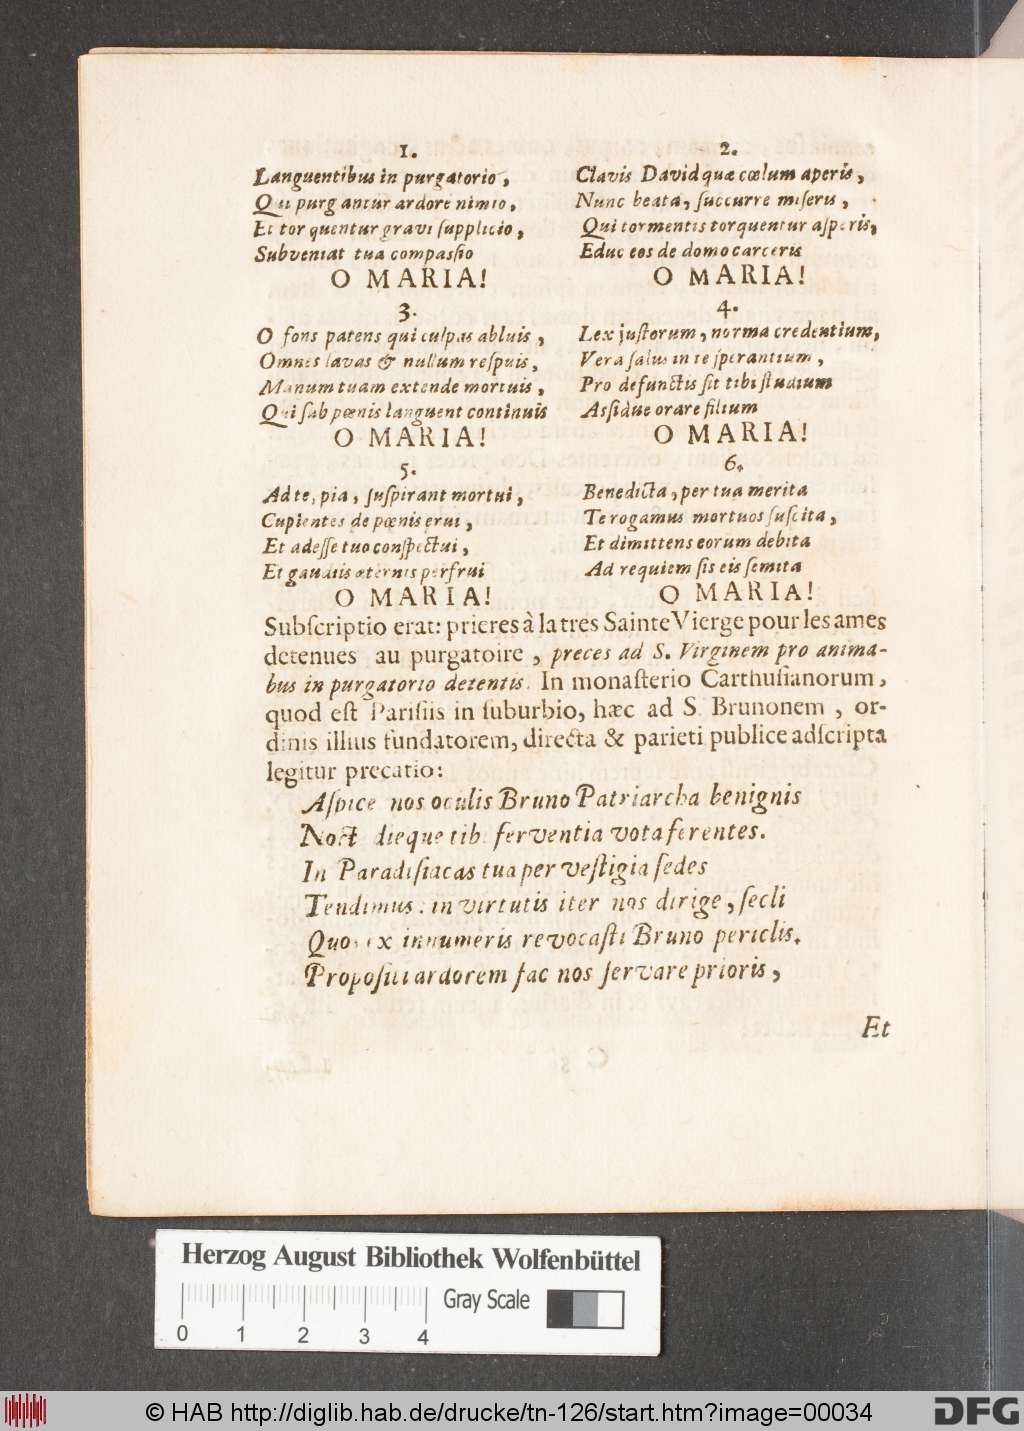 1.
Languentibus in purgatorio,
Qui purgantur ardore nimio,
Et torquentur gravi ſupplicio,
Subveniat tua compaſſio
O MARIA!
2.
Clavis David quæ cœlum aperis,
Nunc beata, ſuccurre miſeris,
Qui tormentis torquentur aſperis,
Educ eos de domo carceris
O MARIA!
3.
O fons patens qui culpas abluis,
Omnes lavas & nullum reſpuis,
Manum tuam extende mortuis,
Qui ſub pœnis languent continuis
O MARIA!
4.
Lex juſtorum, norma credentium,
Vera ſalus in te ſperantium,
Pro defunctis ſit tibi ſtudium
Aſſidue orare filium
O MARIA!
5.
Ad te, pia, ſuſpirant mortui,
Cupientes de pœnis erui,
Et adeſſe tuo conſpectui,
Et gaudiis æternis perfrui
O MARIA!
6.
Benedicta, per tua merita
Te rogamus mortuos ſuſcita,
Et dimittens eorum debita
Ad requiem ſis eis ſemita
O MARIA!
Subſcriptio erat: prieres à la tres Sainte Vierge pour les ames
detenues au purgatoire, preces ad S. Virginem pro anima-
bus in purgatorio detentis. In monaſterio Carthuſianorum,
quod eſt Pariſiis in ſuburbio, hæc ad S. Brunonem, or-
dinis illius fundatorem, directa & parieti publice adſcripta
legitur precatio:
Aſpice nos oculis Bruno Patriarcha benignis
Noct dieque tibi ferventia vota ferentes.
In Paradiſiacas tua per veſtigia ſedes
Tendimus: in virtutis iter nos dirige, ſecli
Quos ex innumeris revocaſti Bruno periclis.
Propoſiti ardorem fac nos ſervare prioris,
Et
Herzog August Bibliothek Wolfenbüttel
Gray Scale
0 1 2 3 4
© HAB http://diglib.hab.de/drucke/tn-126/start.htm?image=00034
DFG